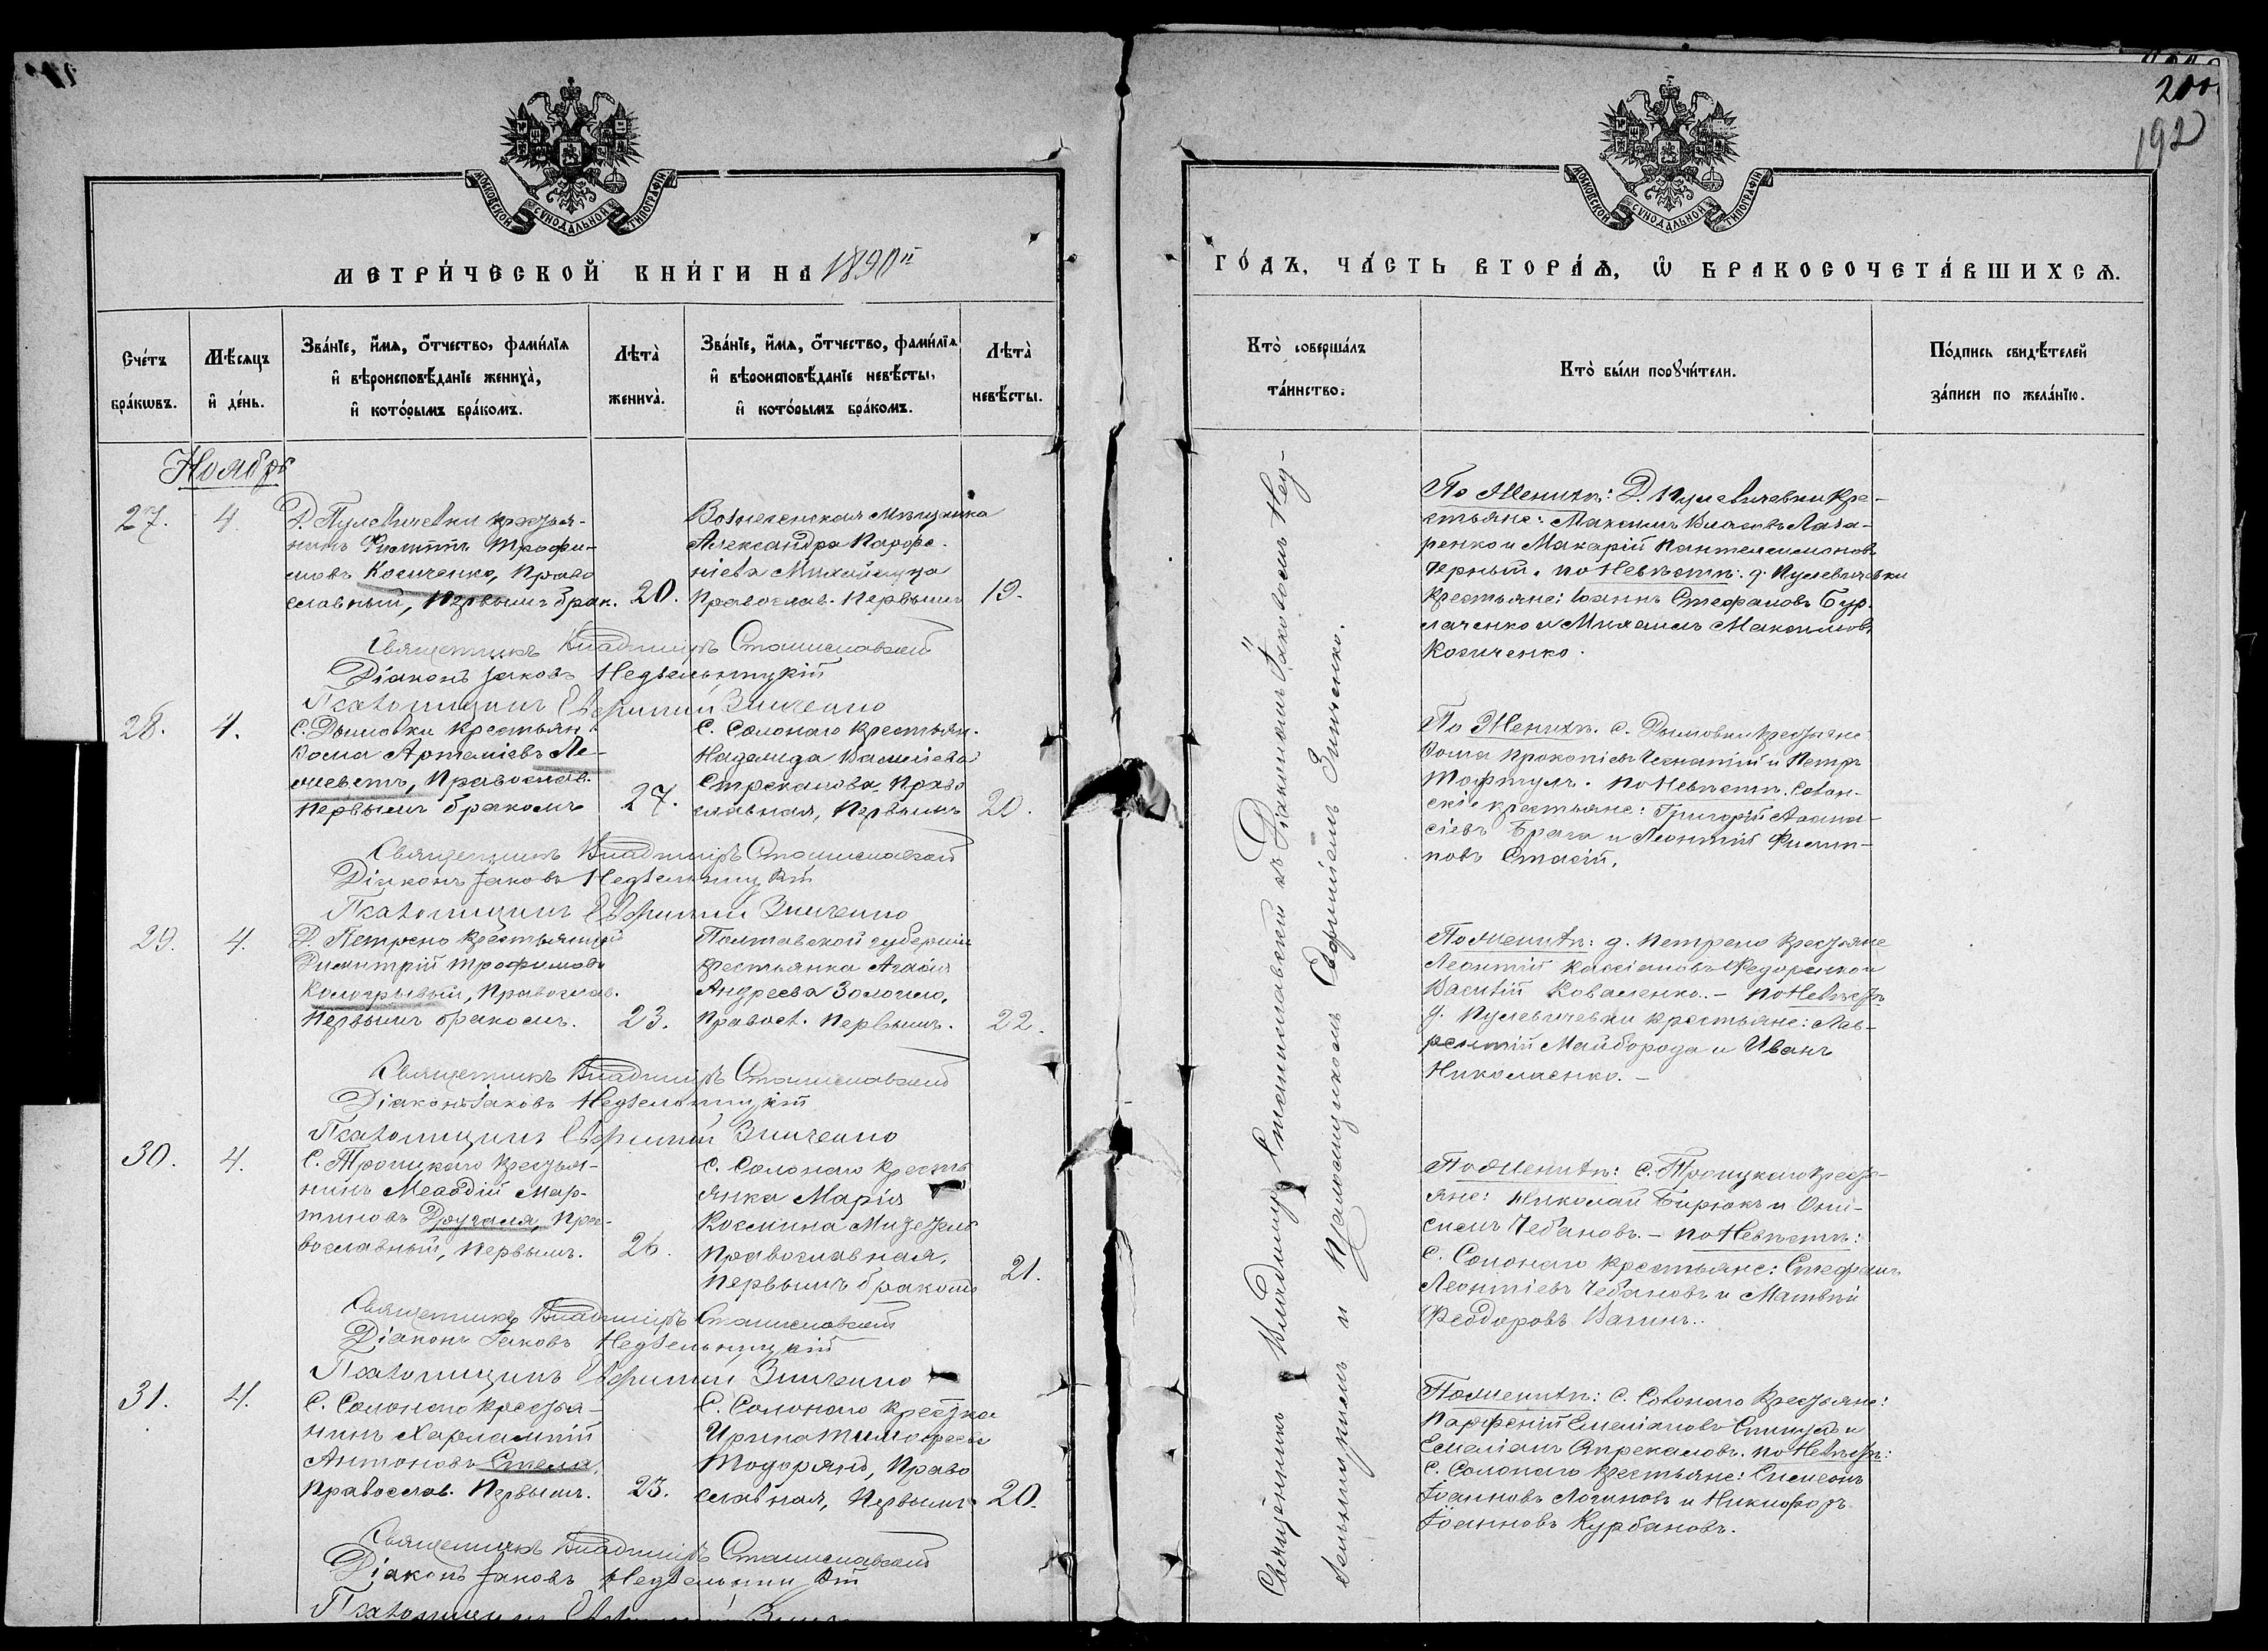 МОСКОВСКОЙ СѴНОДАЛЬНОЙ ТИПОГРАФІИ
МЕТРИ́ЧЕСКОЙ КНИ́ГИ НА 1890й
Сче́тъ бра́кѡвъ.
Мѣ́сяцъ и҆ де́нь.
Зва́нїе, и҆́мя, ѻ҆́тчество, фами́лїя
и҆ вѣроисповѣ́данїе жениха̀,
и҆ кото́рымъ бра́комъ.
Лѣта̀ жениха̀.
Зва́нїе, и҆́мя, ѻ҆́тчество, фами́лїя
и҆ вѣроисповѣ́данїе невѣ́сты,
и҆ кото́рымъ бра́комъ.
Лѣта̀ невѣ́сты.
Ноябрь
27.
4
Д. Пулевичевки крестья-
нинъ Трофи-
мовъ Косиченко, право
славный, первымъ брак.
20.
Вознесенская мѣщанка
Александра Парфе-
нiева
Православ. Первымъ
19.
Священникъ Владимiръ Станиславскiй
Дiаконъ Iаковъ Недѣльницкiй
Псаломщикъ Евфимiй Зинченко
28.
4.
С. Дымовки крестьян.
Ѳома Артемiевъ Ле-
, Православ.
Первымъ бракомъ
27.
С. Солонаго крестьян.
Надежда Василiева
Стреканова. Право
славная, Первымъ
20.
Священникъ Владимiръ Станиславскiй
Дiаконъ Iаковъ Недѣльницкiй
Псаломщикъ Евфимiй Зинченко
29.
4.
Д. Петрено крестьянинъ
Димитрiй Трофимовъ
Кологрывый, Православ.
Первымъ бракомъ.
23.
Полтавской губернiи
крестьянка Агаѳiя
Андреева Золотило,
Правосл. Первымъ.
22.
Священникъ Владимiръ Станиславскiй
Дiаконъ Iаковъ Недѣльницкiй
Псаломщикъ Евфимiй Зинченко
30.
4.
С. Троицкаго крестья-
нинъ Меѳодiй Мар-
тиновъ Другаля, Пра-
вославный, Первымъ.
26.
С. Солонаго кресть
янка Марiя
Космина
Православная,
Первымъ бракомъ
21.
Священникъ Владимiръ Станиславскiй
Дiаконъ Iаковъ Недѣльницкiй
Псаломщикъ Евфимiй Зинченко
31.
4.
С. Солонаго крестья-
нинъ Харлампiй
Антоновъ
Православ. Первымъ.
23.
С. Солонаго крестка
Ирина Тимофеева
, Право
славная, Первымъ
20.
Священникъ Владимiръ Станиславскiй
Дiаконъ Iаковъ Недѣльницкiй
Псаломщикъ Евфимiй
200
192
МОСКОВСКОЙ СѴНОДАЛЬНОЙ ТИПОГРАФІИ
ГО́ДЪ, ЧА́СТЬ ВТОРА́Ѧ, Ѽ БРАКОСОЧЕТА́ВШИХСѦ.
Кто̀ соверша́лъ та́инство.
Кто̀ бы́ли порꙋчи́тели.
По́дпись свидѣ́телей
за́писи по жела́нїю.
Священникъ Владимiръ Станиславскiй съ Дiакономъ Iаковомъ Нед-
ѣльницкимъ и Псаломщикомъ Евфимiемъ Зинченко.
По Женихѣ: Д. Пулевичевки Кре-
стьяне: Максимъ Власовъ Лаза-
ренко и Макарiй Пантелеимоновъ
Черный. по Невѣстѣ: д. Пулевичевки
Крестьяне: Iоаннъ Стефановъ Бур-
лаченко и Михаилъ Максимовъ
Косиченко.
По Женихѣ. с. Дымовки крестьяне
Ѳома Прокопiевъ и Петръ
. По Невѣстѣ. Солон-
скiе крестьяне: Григорiй Аѳана-
сiевъ и Леонтiй Филип-
повъ Стасiй.
По Женихѣ: д. Петрено Крестьяне
Леонтiй Кассiановъ Федоренко и
Василiй Коваленко. – по Невѣстѣ
д. Пулевичевки крестьяне: Лав-
рентiй Майборода и Иванъ
Николаенко. –
По Женихѣ: с. Троицкаго кресть-
яне: Николай Бирюкъ и Они-
симъ Чебановъ. – по Невѣстѣ:
С. Солонаго крестьяне: Стефанъ
Леонтiевъ Чебановъ и Матвѣй
Ѳеодоровъ Вагинъ.
По Женихѣ: с. Солонаго Крестьяне:
Парфенiй Емелiановъ и
Емелiанъ Стрекаловъ. по Невѣстѣ:
С. Солонаго крестьяне: Симеонъ
Iоанновъ Логиновъ и Никифоръ
Iоанновъ Курбановъ.